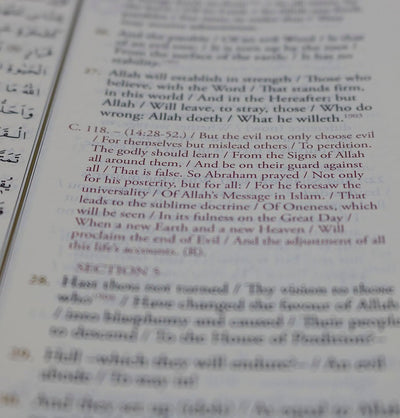 26. And the parable / Of an evil Word / Is that
of an evil tree: / It is torn up by the root /
From the surface of the earth: / It has no
stability.
27. Allah will establish in strength / Those who
believe, with the Word / That stands firm,
in this world / And in the Hereafter; but
Allah / Will leave, to stray, those / Who do
wrong: Allah doeth / What he willeth.1903
C. 118. – (14:28-52.) / But the evil not only choose evil
/ For themselves but mislead others / To perdition.
The godly should learn / From the Signs of Allah
all around them, / And be on their guard against
all / That is false. So Abraham prayed / Not only
for his posterity, but for all: / For he foresaw the
universality / Of Allah's Message in Islam. / That
leads to the sublime doctrine / Of Oneness, which
will be seen / In its fulness on the Great Day /
When a new Earth and a new Heaven / Will
proclaim the end of Evil / And the adjustment of all
this life's accounts. (R).
SECTION 5
28. Hast thou not turned / Thy vision to those
who / Have changed the favour of Allah
/ into blasphemy and caused / Their people
to descend / To the House of Perdition?–
29. Hell –which they will endure?– / An evil
abode / To stay in!
30. And they set up (idols) / As equal to Allah